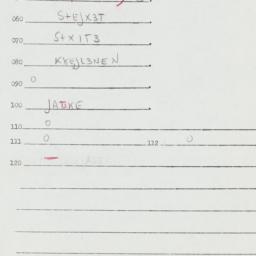 060 StEjX3T
070 S+XIT3
080 KKEJL3NEN
090 O
100 JAUKE
110 O
111 O 112 O
120